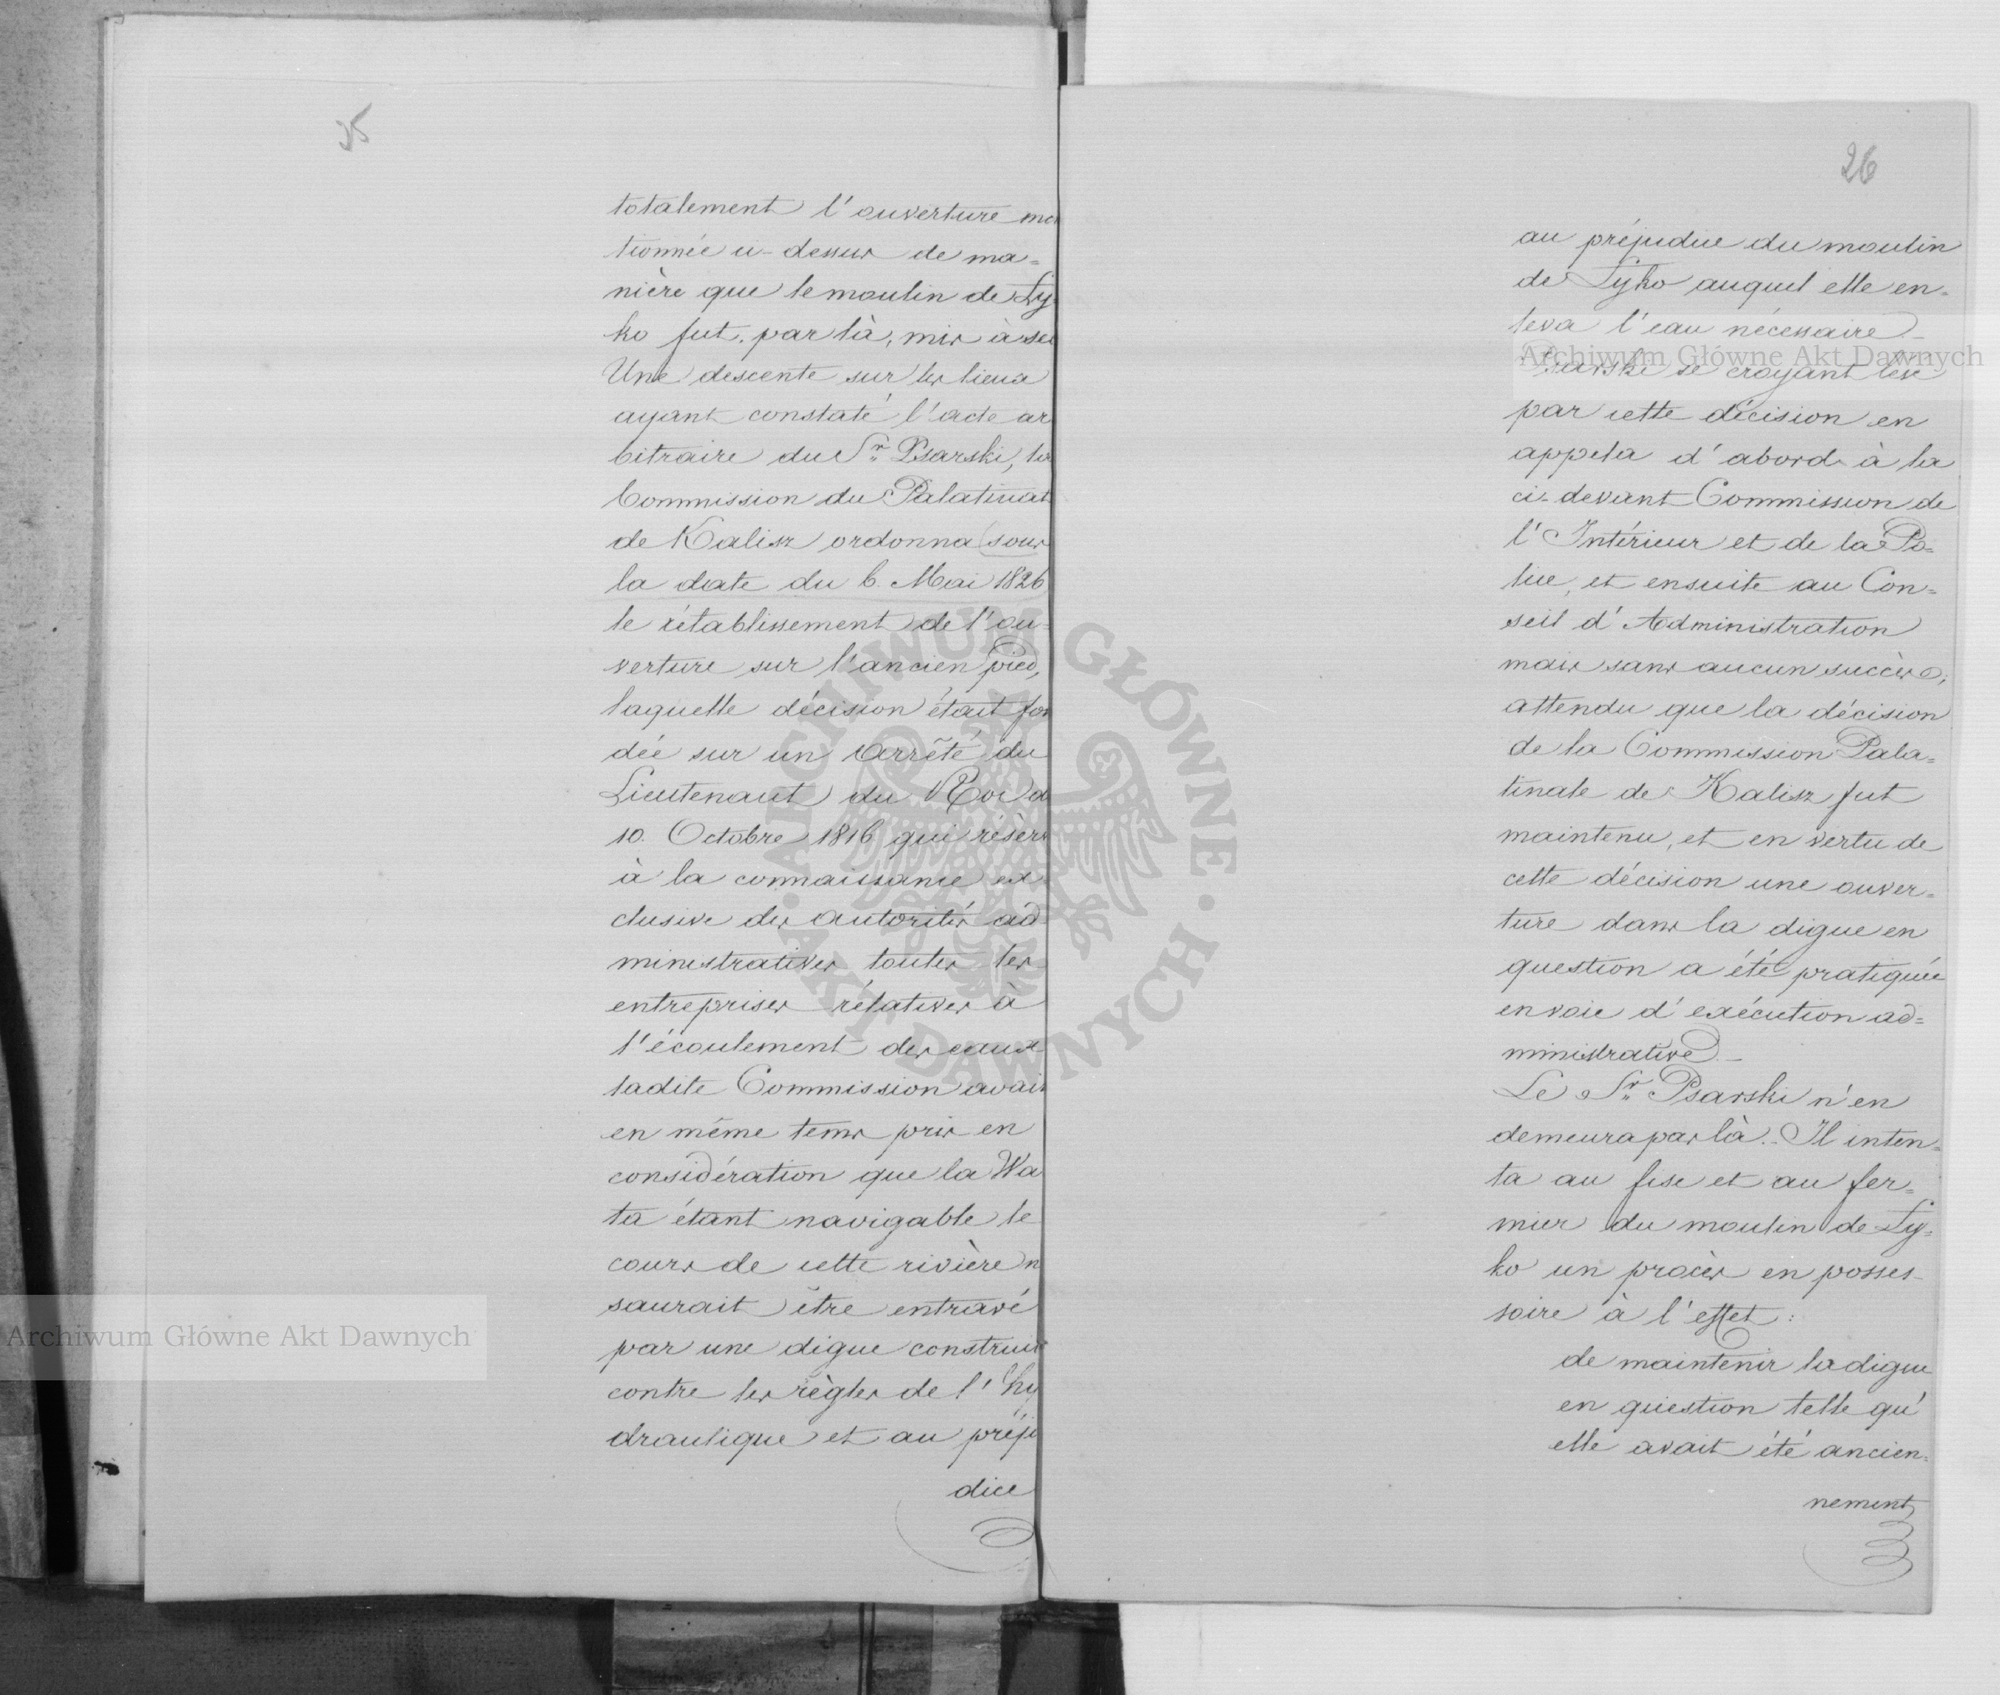 35
totalement l'ouverture men
tionnée ci-dessus de ma=
nière que le moulin de Ły
ko fut, par là, mis à sec
Une descente sur les lieux
ayant constaté l'acte ar
bitraire du Sr. Psarski, la
Commission du Palatinat
de Kalisz ordonna (sous
la date du 6. Mai 1826
le rétablissement de l'ou=
verture sur l'ancien pied,
laquelle décision était fon
dée sur un Arrêté du
Lieutenant du Roi d
10. Octobre 1816 qui réserv
à la connaissance ex
clusive des autorités ad
ministratives toutes les
entreprises rélatives à
l'écoulement des eaux
ladite Commission avait
en même tems pris en
considération que la Wa
ta étant navigable le
cours de cette rivière n
saurait être entravé
par une digue construite
contre les règles de l'hy
draulique et au préju
dice
26
au préjudice du moulin
de Łyko auquel elle en=
leva l'eau nécessaire _
Psarski se croyant lésé
par cette décision en
appela d'abord à la
ci-devant Commission de
l'Intérieur et de la Po=
lice, et ensuite au Con=
seil d'Administration
mais sans aucun succès,
attendu que la décision
de la Commission Pala=
tinale de Kalisz fut
maintenu, et en vertu de
cette décision une ouver=
ture dans la digue en
question a été pratiquée
en voie d'exécution ad=
ministrative _
Le Sr. Psarski n'en
demeura pas là. Il inten=
ta au fisc et au fer=
mier du moulin de Ły=
ko un procès en posses=
soire à l'effet:
de maintenir la digue
en question telle qu'
elle avait été ancien=
nement
Archiwum Główne Akt Dawnych
Archiwum Główne Akt Dawnych
ARCHIWUM GŁÓWNE · AKT DAWNYCH ·